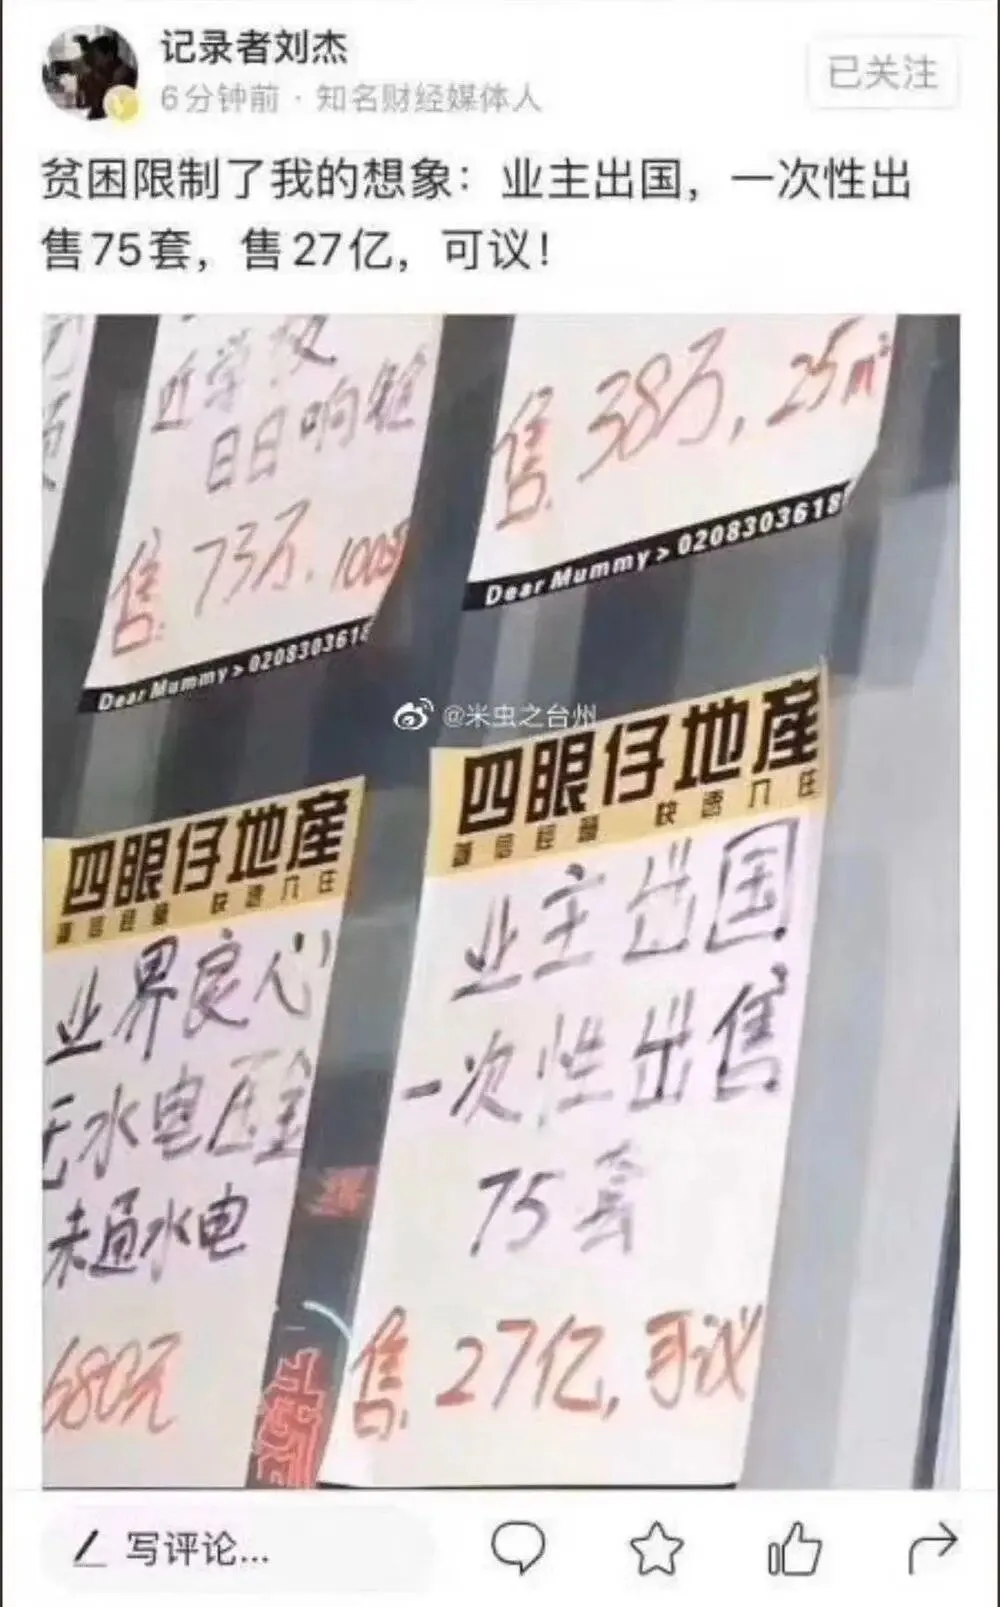 记录者刘杰
6分钟前 · 知名财经媒体人
已关注
贫困限制了我的想象：业主出国，一次性出
售75套，售27亿，可议！
近学校
日日响铃
售:73万.100
Dear Mummy > 0208303618
售:38万,25㎡
Dear Mummy > 0208303618
@米虫之台州
四眼仔地産
誠信經營 快速入住
业界良心
无水电压金
未通水电
680元
四眼仔地産
誠信經營 快速入住
业主出国
一次性出售
75套
售:27亿,可议
写评论...